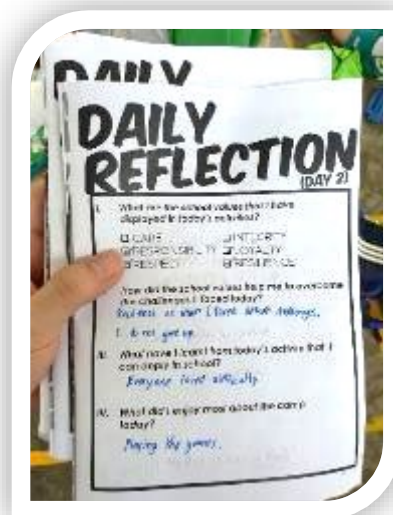 DAILY
DAILY
REFLECTION
(DAY 2)
I. What are the school values that I have
displayed in today's activities?
CARE INTEGRITY
RESPONSIBILITY LOYALTY
RESPECT RESILIENCE
How did the school values help me to overcome
the challenges I faced today?
when I faced challenges,
I do not give up
III. What have I learnt from today's activities that I
can apply in school?
Everyone faced difficulty
IV. What did I enjoy most about the camp
today?
Playing the games.